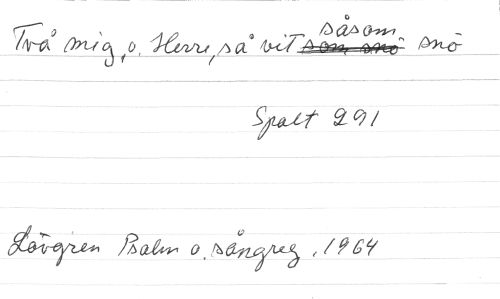 Två mig, o. Herre, så vit såsom snö
Spalt 291
Lövgren Psalm o. sångreg. 1964